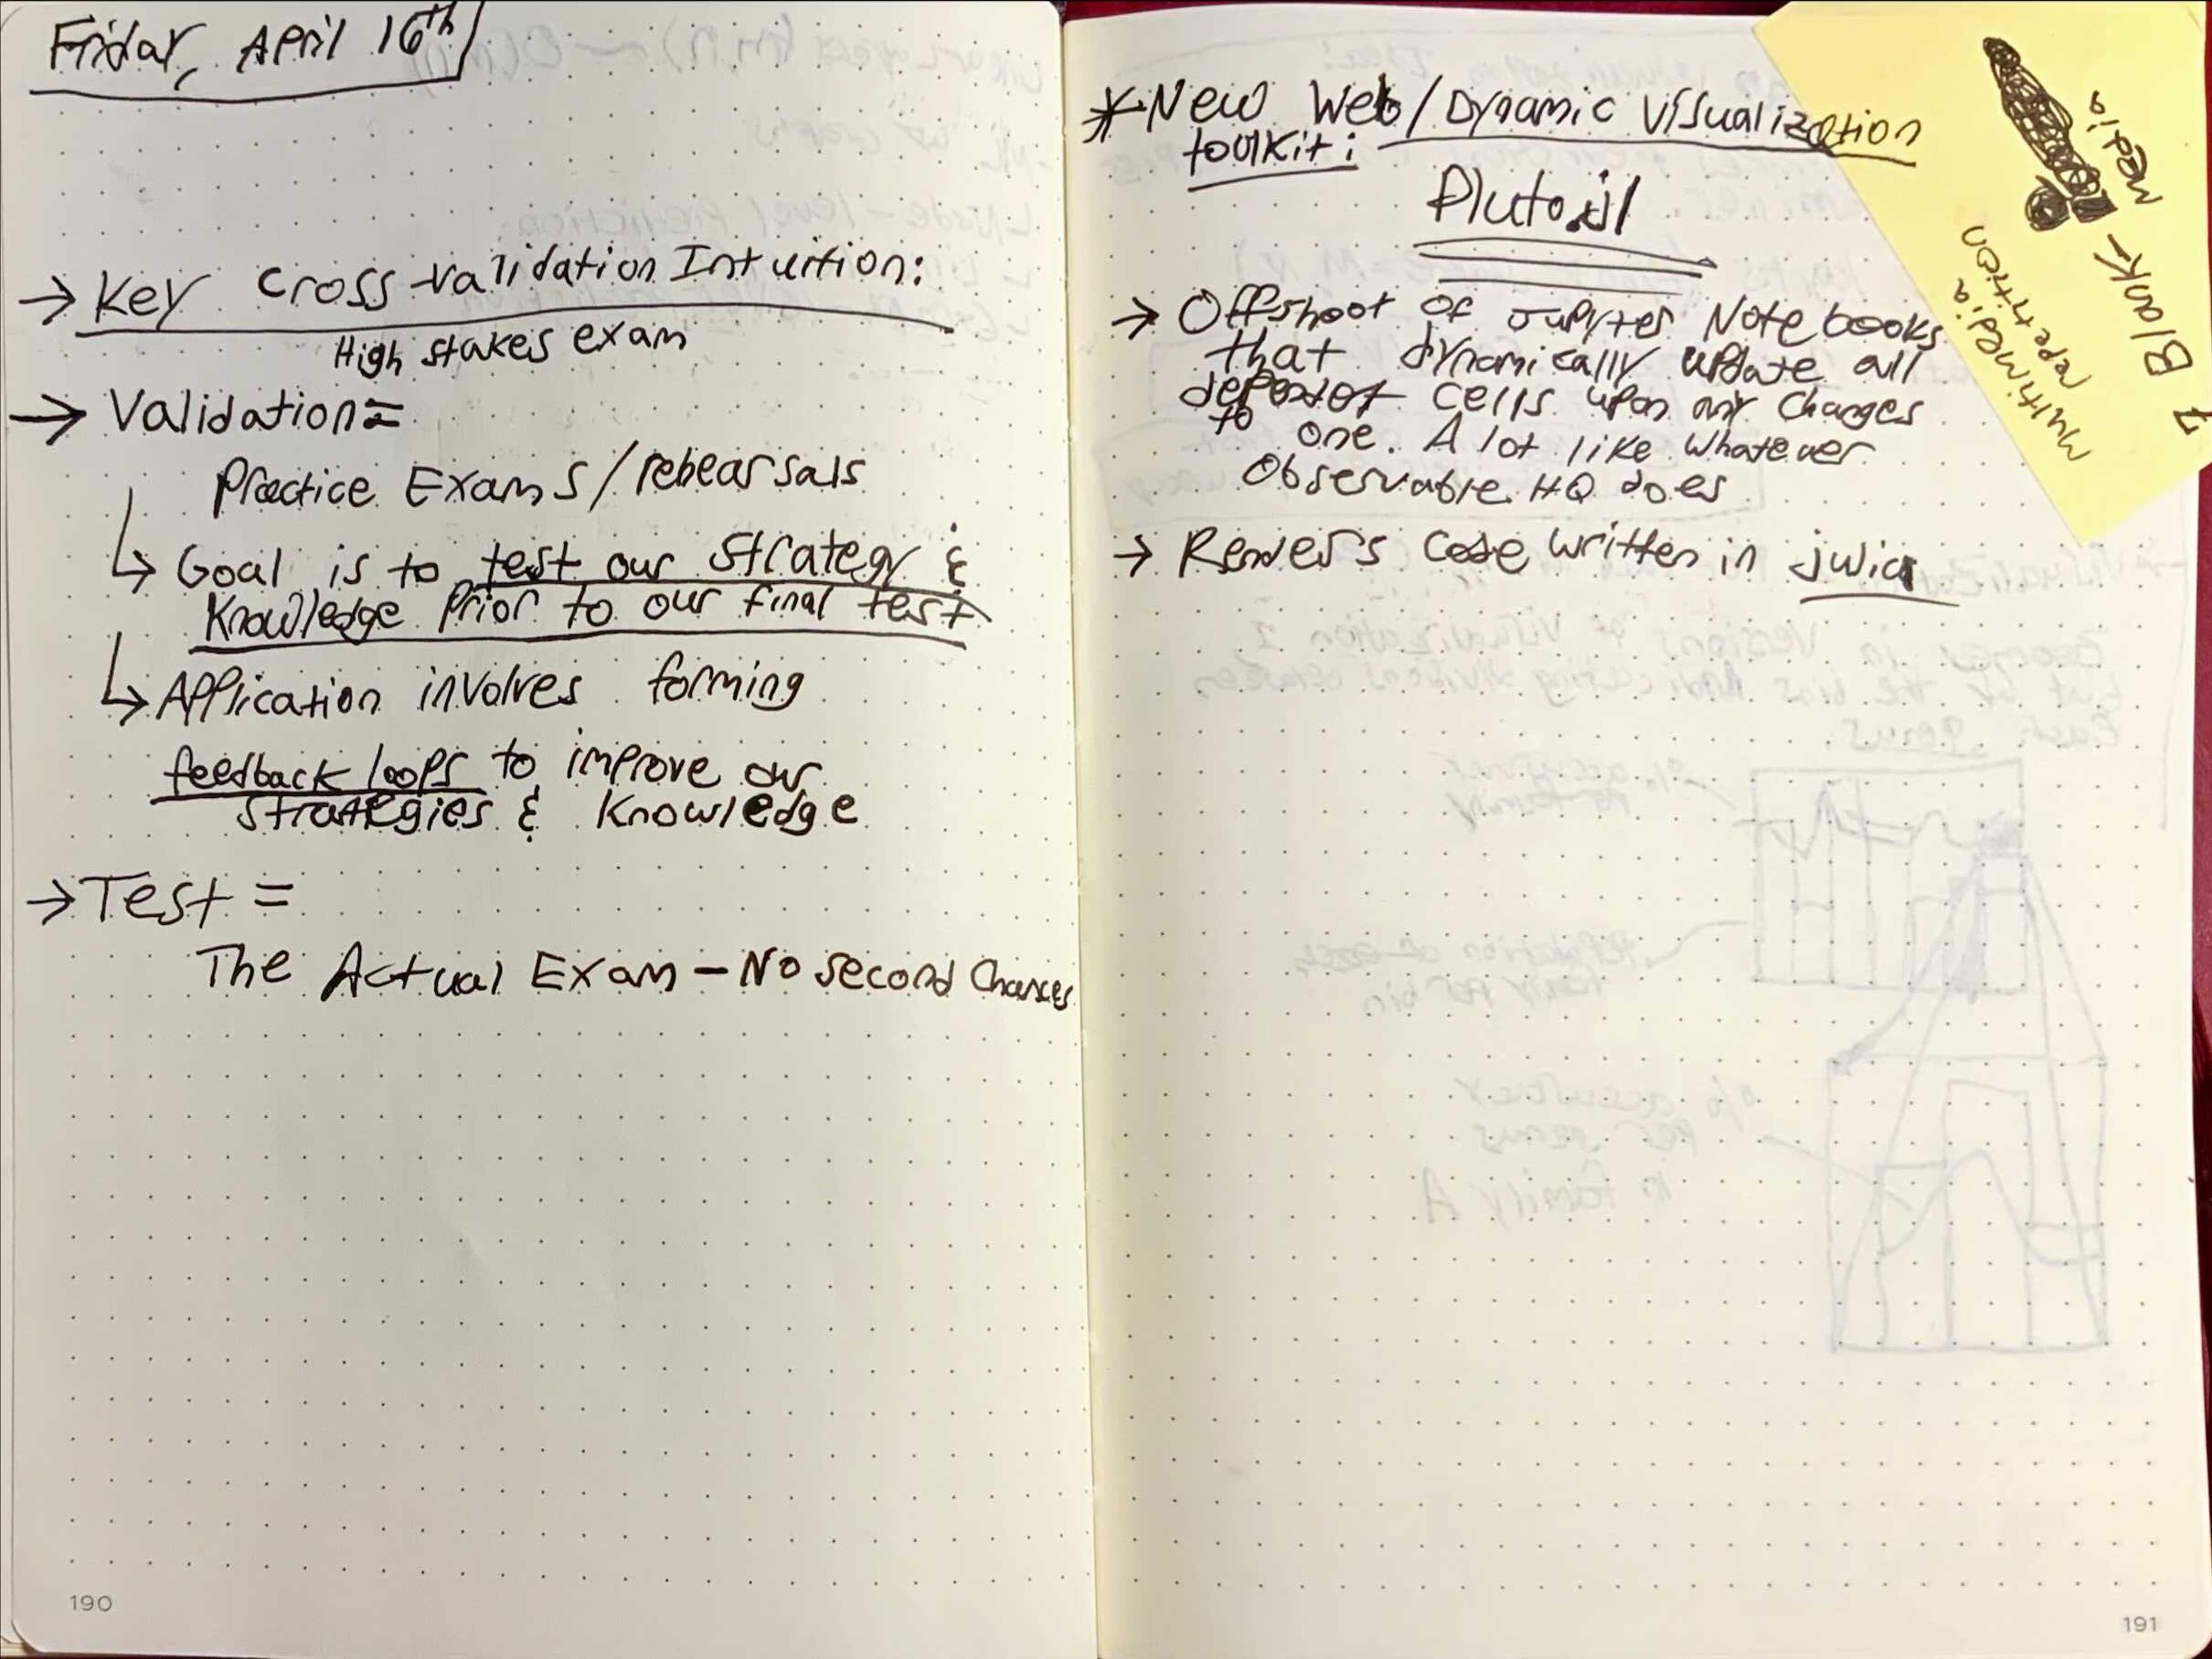 Friday, April 16th
→ Key Cross-validation Intuition:
High stakes exam
→ Validation =
Practice Exams/rehearsals
↳ Goal is to test our strategy &
Knowledge prior to our final test
↳ Application involves forming
feedback loops to improve our
strategies & Knowledge
→ Test =
The Actual Exam – No second Chances
190
* New Web/Dynamic Visualization
toolkit:
Pluto.jl
→ Offshoot of Jupyter Notebooks
that dynamically update all
cells upon any changes
to one. A lot like whatever
Observable HQ does
→ Renders Code written in julia
191
Blank
Media
Multimedia